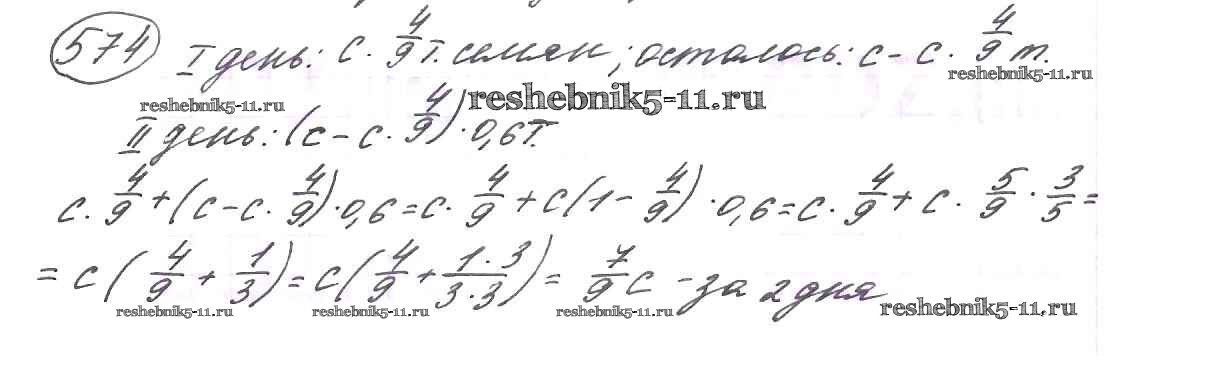 574 I день: с · 4/9 т. семян; осталось: с - с · 4/9 т.
reshebnik5-11.ru
reshebnik5-11.ru reshebnik5-11.ru
II день: (с - с · 4/9) · 0,6 т.
с · 4/9 + (с - с · 4/9) · 0,6 = с · 4/9 + с(1 - 4/9) · 0,6 = с · 4/9 + с · 5/9 · 3/5 =
= с(4/9 + 1/3) = с(4/9 + 1·3/3·3) = 7/9 с - за 2 дня
reshebnik5-11.ru reshebnik5-11.ru reshebnik5-11.ru reshebnik5-11.ru